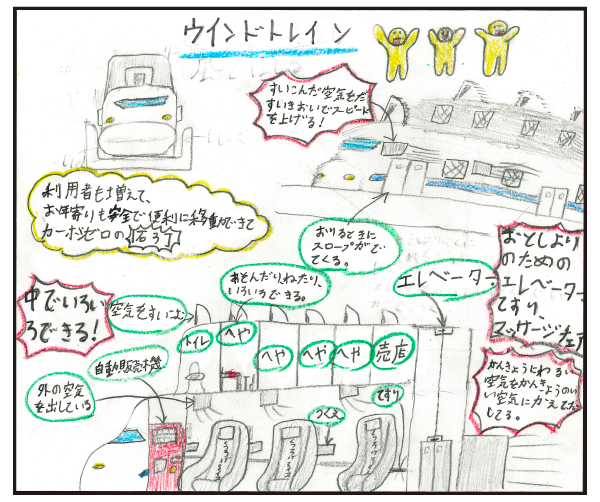 ウインドトレイン
すいこんだ空気をだ
すいきおいでスピード
を上げる！
利用者も増えて、
お年寄りも安全で便利に移動できて
カーボンゼロの
おりるときに
スロープがで
てくる。
おとしより
のための
エレベーター
てすり、
マッサージチェア
中でいろい
ろできる！
空気をすいこむ
あそんだり、ねたり、
いろいろできる。
エレベーター
トイレ
へや
へや
へや
へや
売店
自動販売機
外の空気
を出している
てすり
つくえ
かんきょうにわるい
空気をかんきょうのいい
い空気にかえてだ
してる。